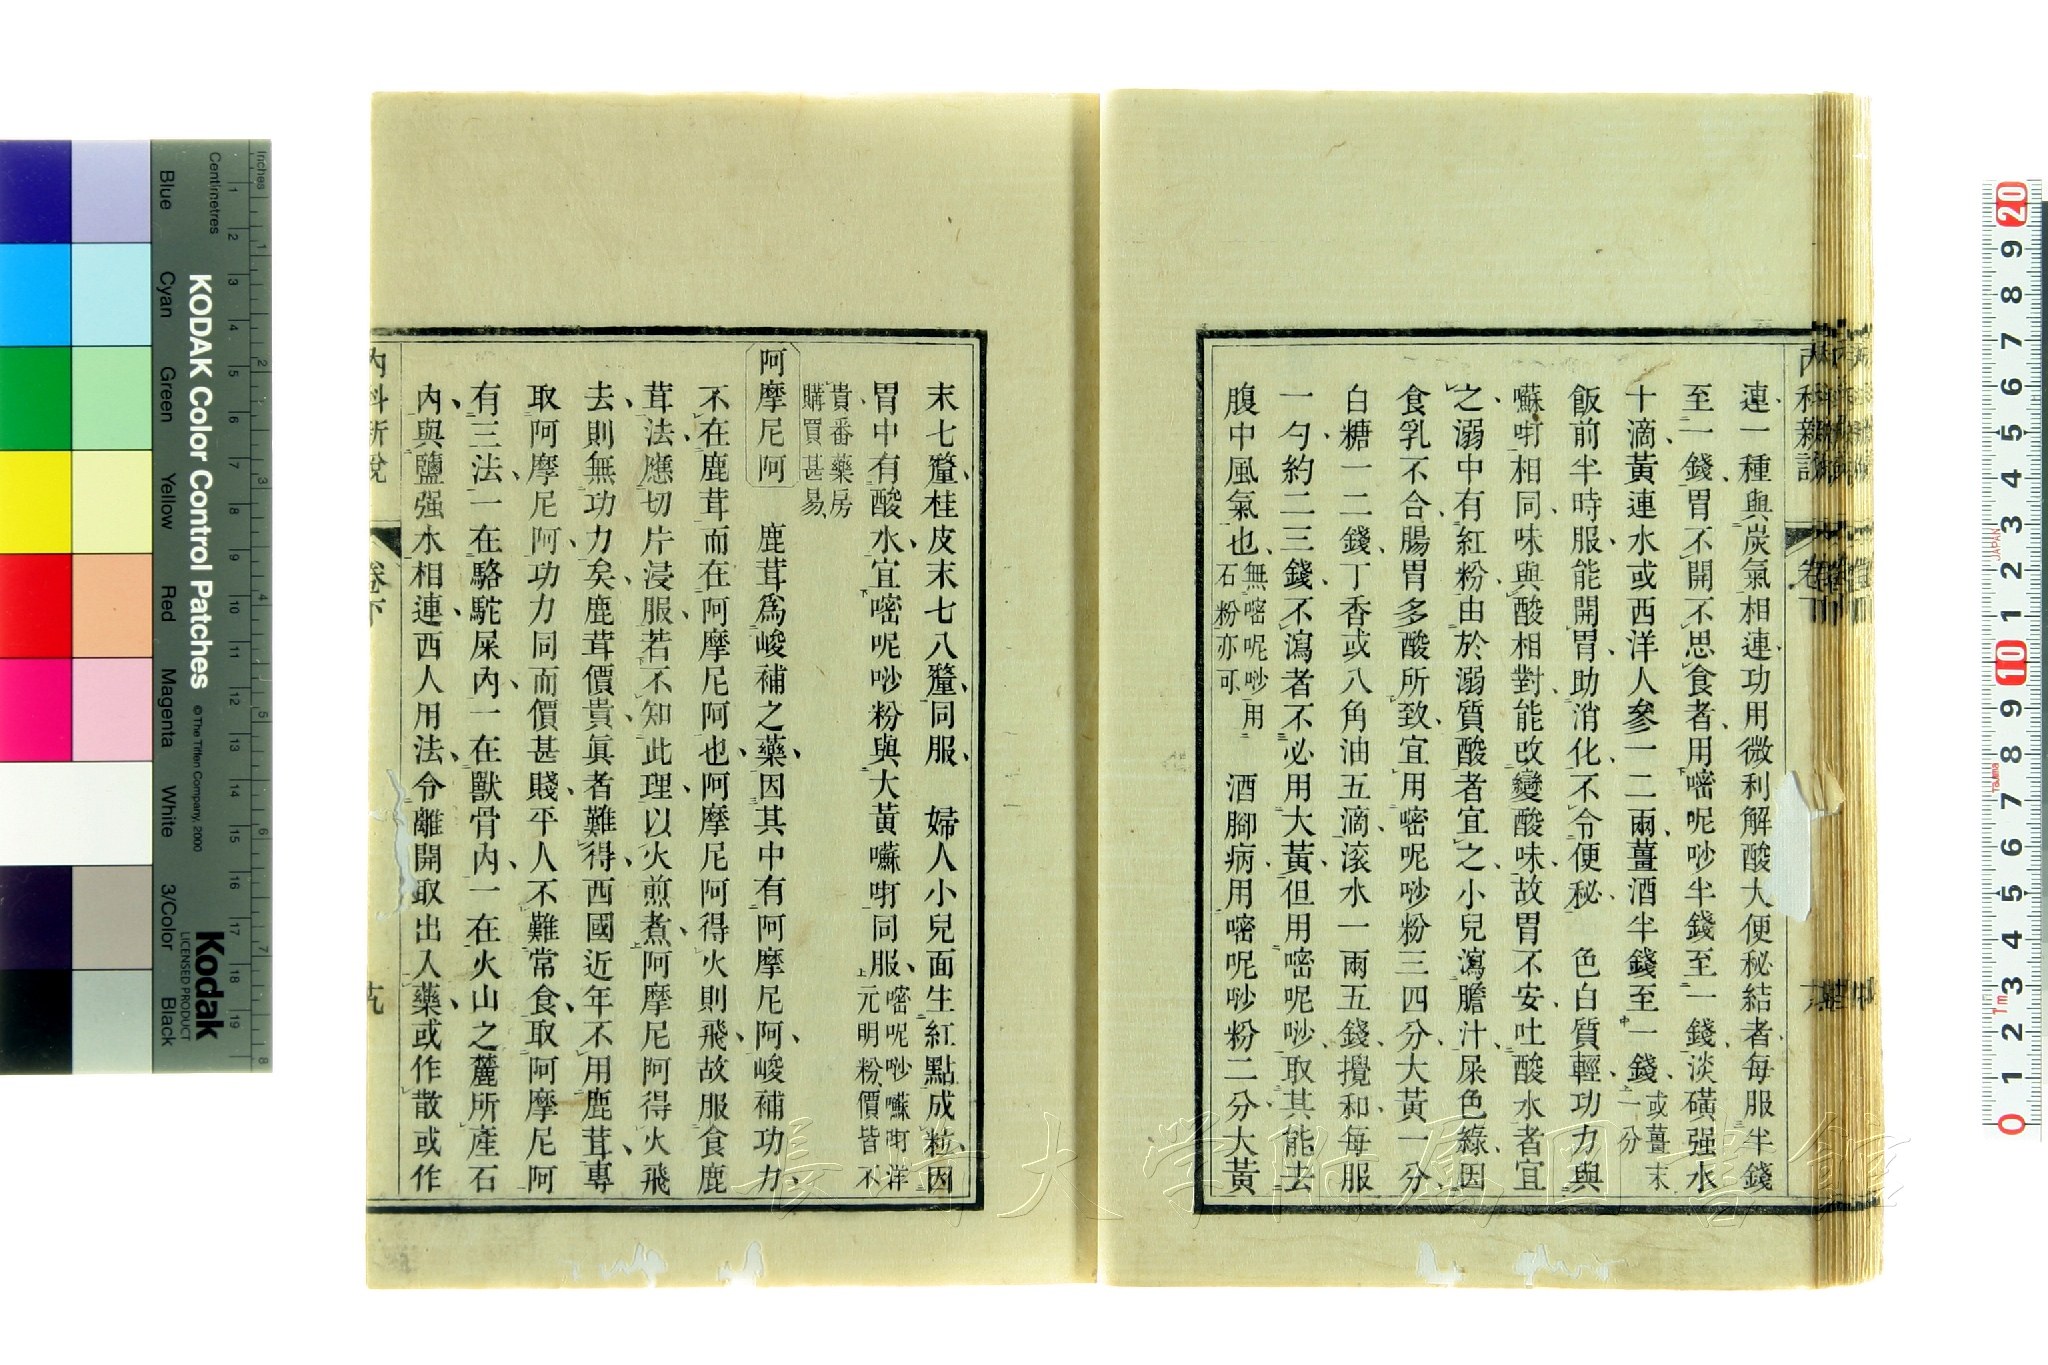 內科新說
卷下
連一種與炭氣相連功用微利解酸大便秘結者每服半錢
至一錢胃不開不思食者用嘧呢唦半錢至一錢淡磺强水
十滴黃連水或西洋人參一二兩薑酒半錢至一錢或薑末一分
飯前半時服能開胃助消化不令便秘　色白質輕功力與
囌𠯿相同味與酸相對能改變酸味故胃不安吐酸水者宜
之溺中有紅粉由於溺質酸者宜之小兒瀉膽汁屎色綠因
食乳不合腸胃多酸所致宜用嘧呢唦粉三四分大黃一分
白糖一二錢丁香或八角油五滴滚水一兩五錢攪和每服
一勺約二三錢不瀉者不必用大黃但用嘧呢唦取其能去
腹中風氣也無嘧呢唦用石粉亦可　酒腳病用嘧呢唦粉二分大黃
末七釐桂皮末七八釐同服　婦人小兒面生紅點成粒因
胃中有酸水宜嘧呢唦粉與大黃囌𠯿同服嘧呢唦囌𠯿洋元明粉價皆不
貴番藥房購買甚易
阿摩尼阿　鹿茸爲峻補之藥因其中有阿摩尼阿峻補功力
不在鹿茸而在阿摩尼阿也阿摩尼阿得火則飛故服食鹿
茸法應切片浸服若不知此理以火煎煮阿摩尼阿得火飛
去則無功力矣鹿茸價貴眞者難得西國近年不用鹿茸專
取阿摩尼阿功力同而價甚賤平人不難常食取阿摩尼阿
有三法一在駱駝屎內一在獸骨內一在火山之麓所產石
內與鹽强水相連西人用法令離開取出入藥或作散或作
內科新說
卷下